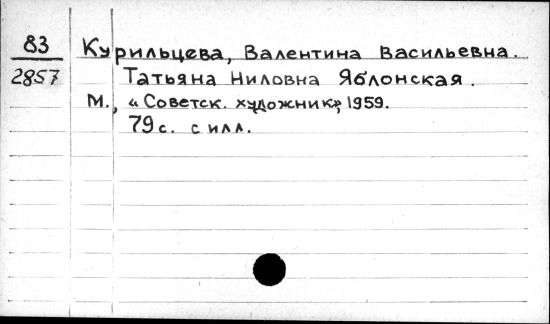 83 Курильцева, Валентина Васильевна.
2857 Татьяна Ниловна Яблонская.
М., «Советск. художник», 1959.
79 с. с илл.